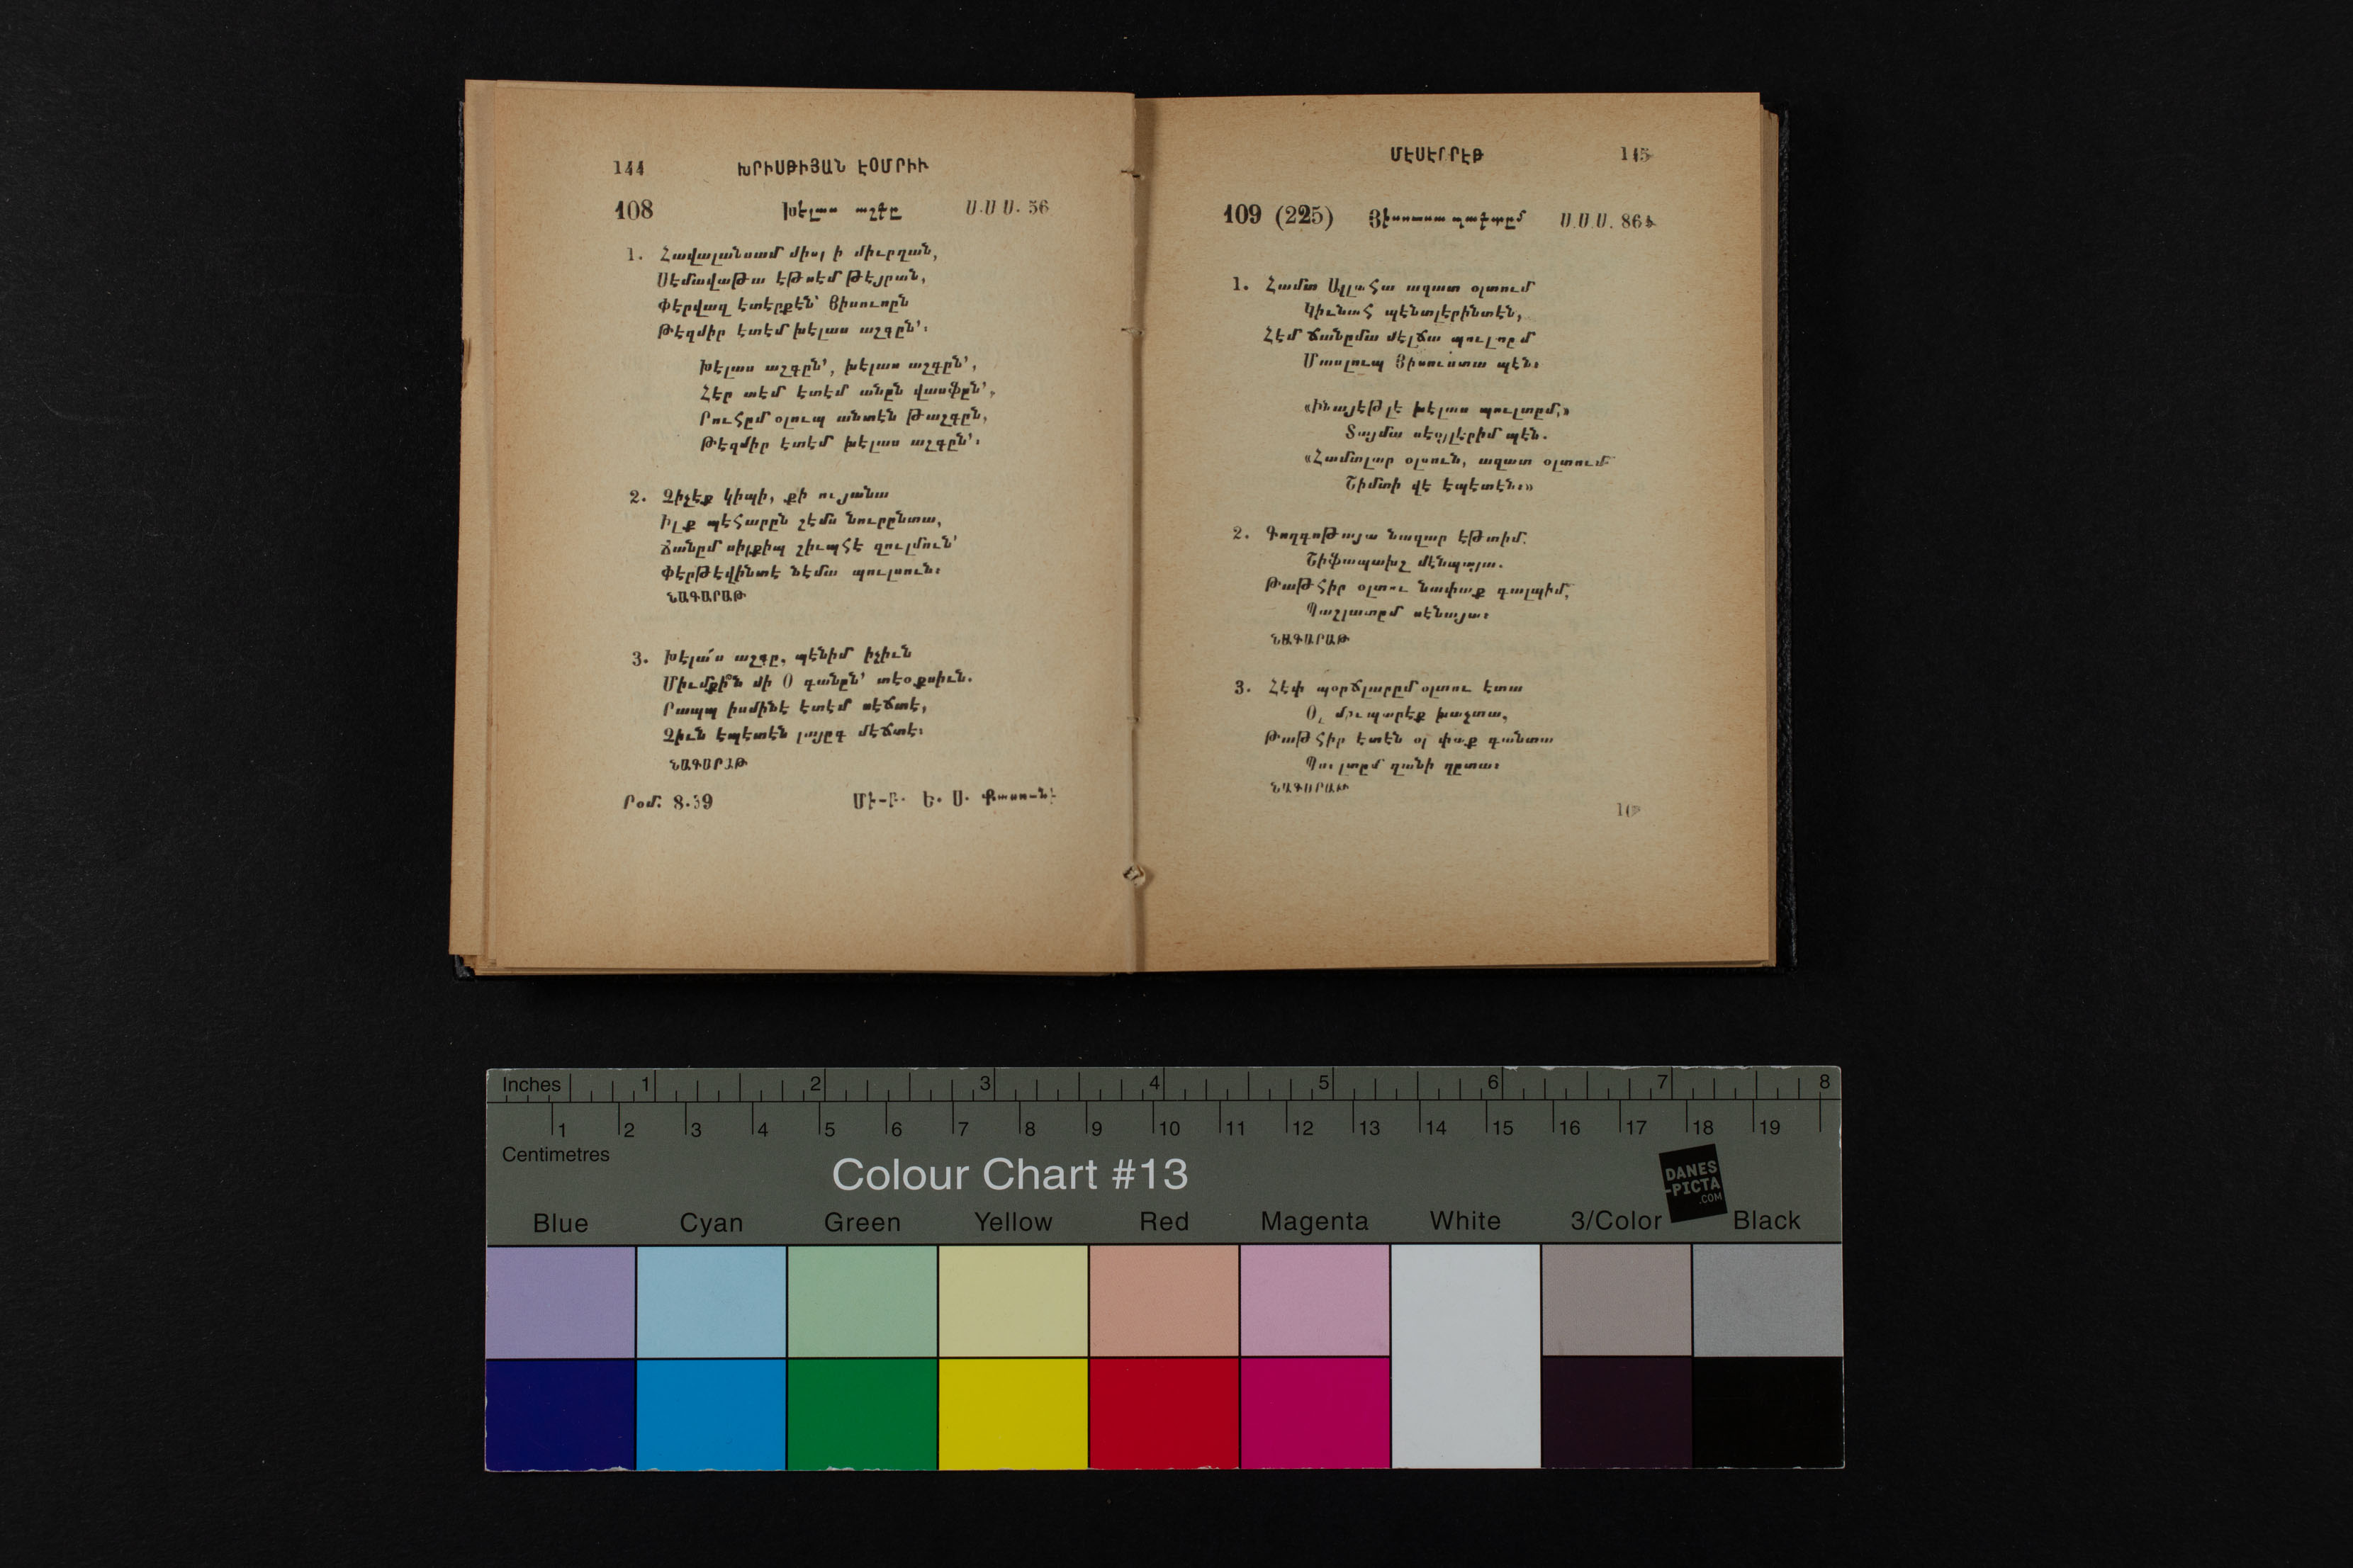 144 ԽՐԻՍԹԻՅԱՆ ԷՕՄՐԻՒ
108 Խէլաս աշքը Ս.Ս Ս. 56
1. Հավալանսամ միսլ ի միւրղան,
Սէմավաթա էթսէմ թէյրան,
Փէրվազ էտէրքէն՝ Յիսուսըն
Թէզմիր էտէմ խէլաս աշգըն՝։
Խէլաս աշգըն՝, խէլաս աշգըն՝,
Հէր տէմ էտէմ անըն վասֆըն՝,
Րուհըմ օլուպ անտէն թաշգըն,
Թէզմիր էտէմ խէլաս աշգըն՝։
2. Չիչէք կիպի, քի ույանա
Իլք պէհարըն շէմս նուրընտա,
Ճանըմ սիլքիպ շիւպհէ զուլմուն՝
Փէրթէվինտէ նէմա պուլսուն։
ՆԱԳԱՐԱԹ
3. Խէլա՛ս աշգը, պէնիմ իչիւն
Միւմքի՞ն մի Օ գանըն՝ տէօքսիւն.
Րապպ իսմինէ էտէմ սէճտէ,
Չիւն էպէտէն լայըգ մէճտէ։
ՆԱԳԱՐԱԹ
Րօմ. 8.39 Ե. Ս.
ՄԷՍԷՐՐԷԹ 145
109 (225) Յիսուսա Ս.Ս.Ս. 864
1. Համտ Ալլահա ազատ օլտում
Կիւնահ պէնտլէրինտէն,
Հէմ ճանըմա մէլճա պուլտըմ
Մասլուպ Յիսուստա պէն։
«Ինայէթլէ խէլաս պուլտըմ,»
Տայմա սէօյլէրիմ պէն.
«Համտլար օլսուն, ազատ օլտում
Շիմտի վէ էպէտէն։»
2. Գողգոթայա նազար էթտիմ.
Շիֆապախշ մէնպայա.
Թաթհիր օլտու նափաք գալպիմ,
Պաշլատըմ սէնայա։
ՆԱԳԱՐԱԹ
3. Հէփ պօրճլարըմ օլտու էտա
Օ, միւպարէք խաչտա,
Թաթհիր էտէն օլ փաք գանտա
Պուլտըմ ղանի ղըտա։
ՆԱԳԱՐԱԹ
10
Inches 1 2 3 4 5 6 7 8
1 2 3 4 5 6 7 8 9 10 11 12 13 14 15 16 17 18 19
Centimetres
Colour Chart #13
DANES
-PICTA
.COM
Blue Cyan Green Yellow Red Magenta White 3/Color Black